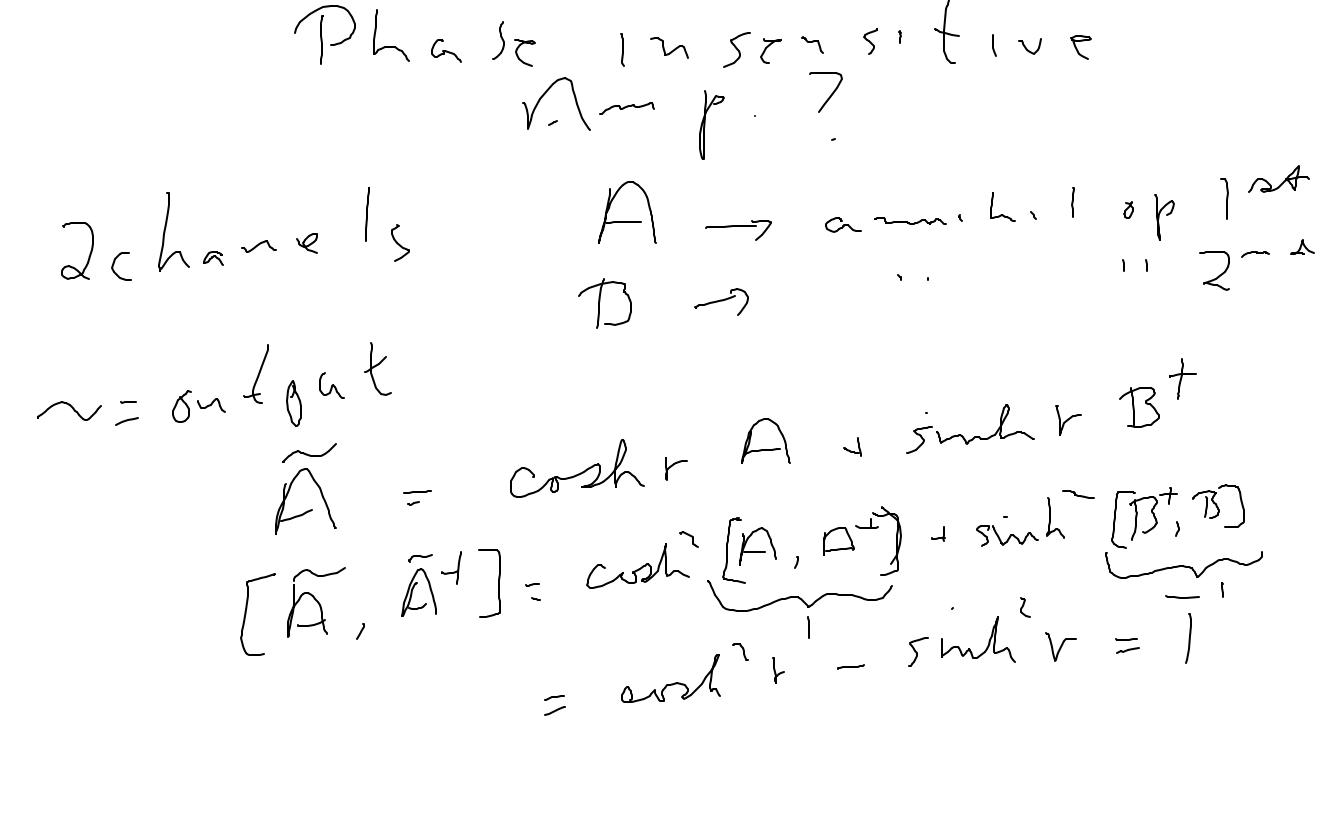 Phase insensitive
Amp. ?
2 chanels A → annihil op 1st
B → " " 2nd
~ = output
Ã = cosh r A + sinh r B†
[Ã, Ã†] = cosh² [A, A†] + sinh² [B†, B]
1 -1
= cosh² r - sinh² r = 1